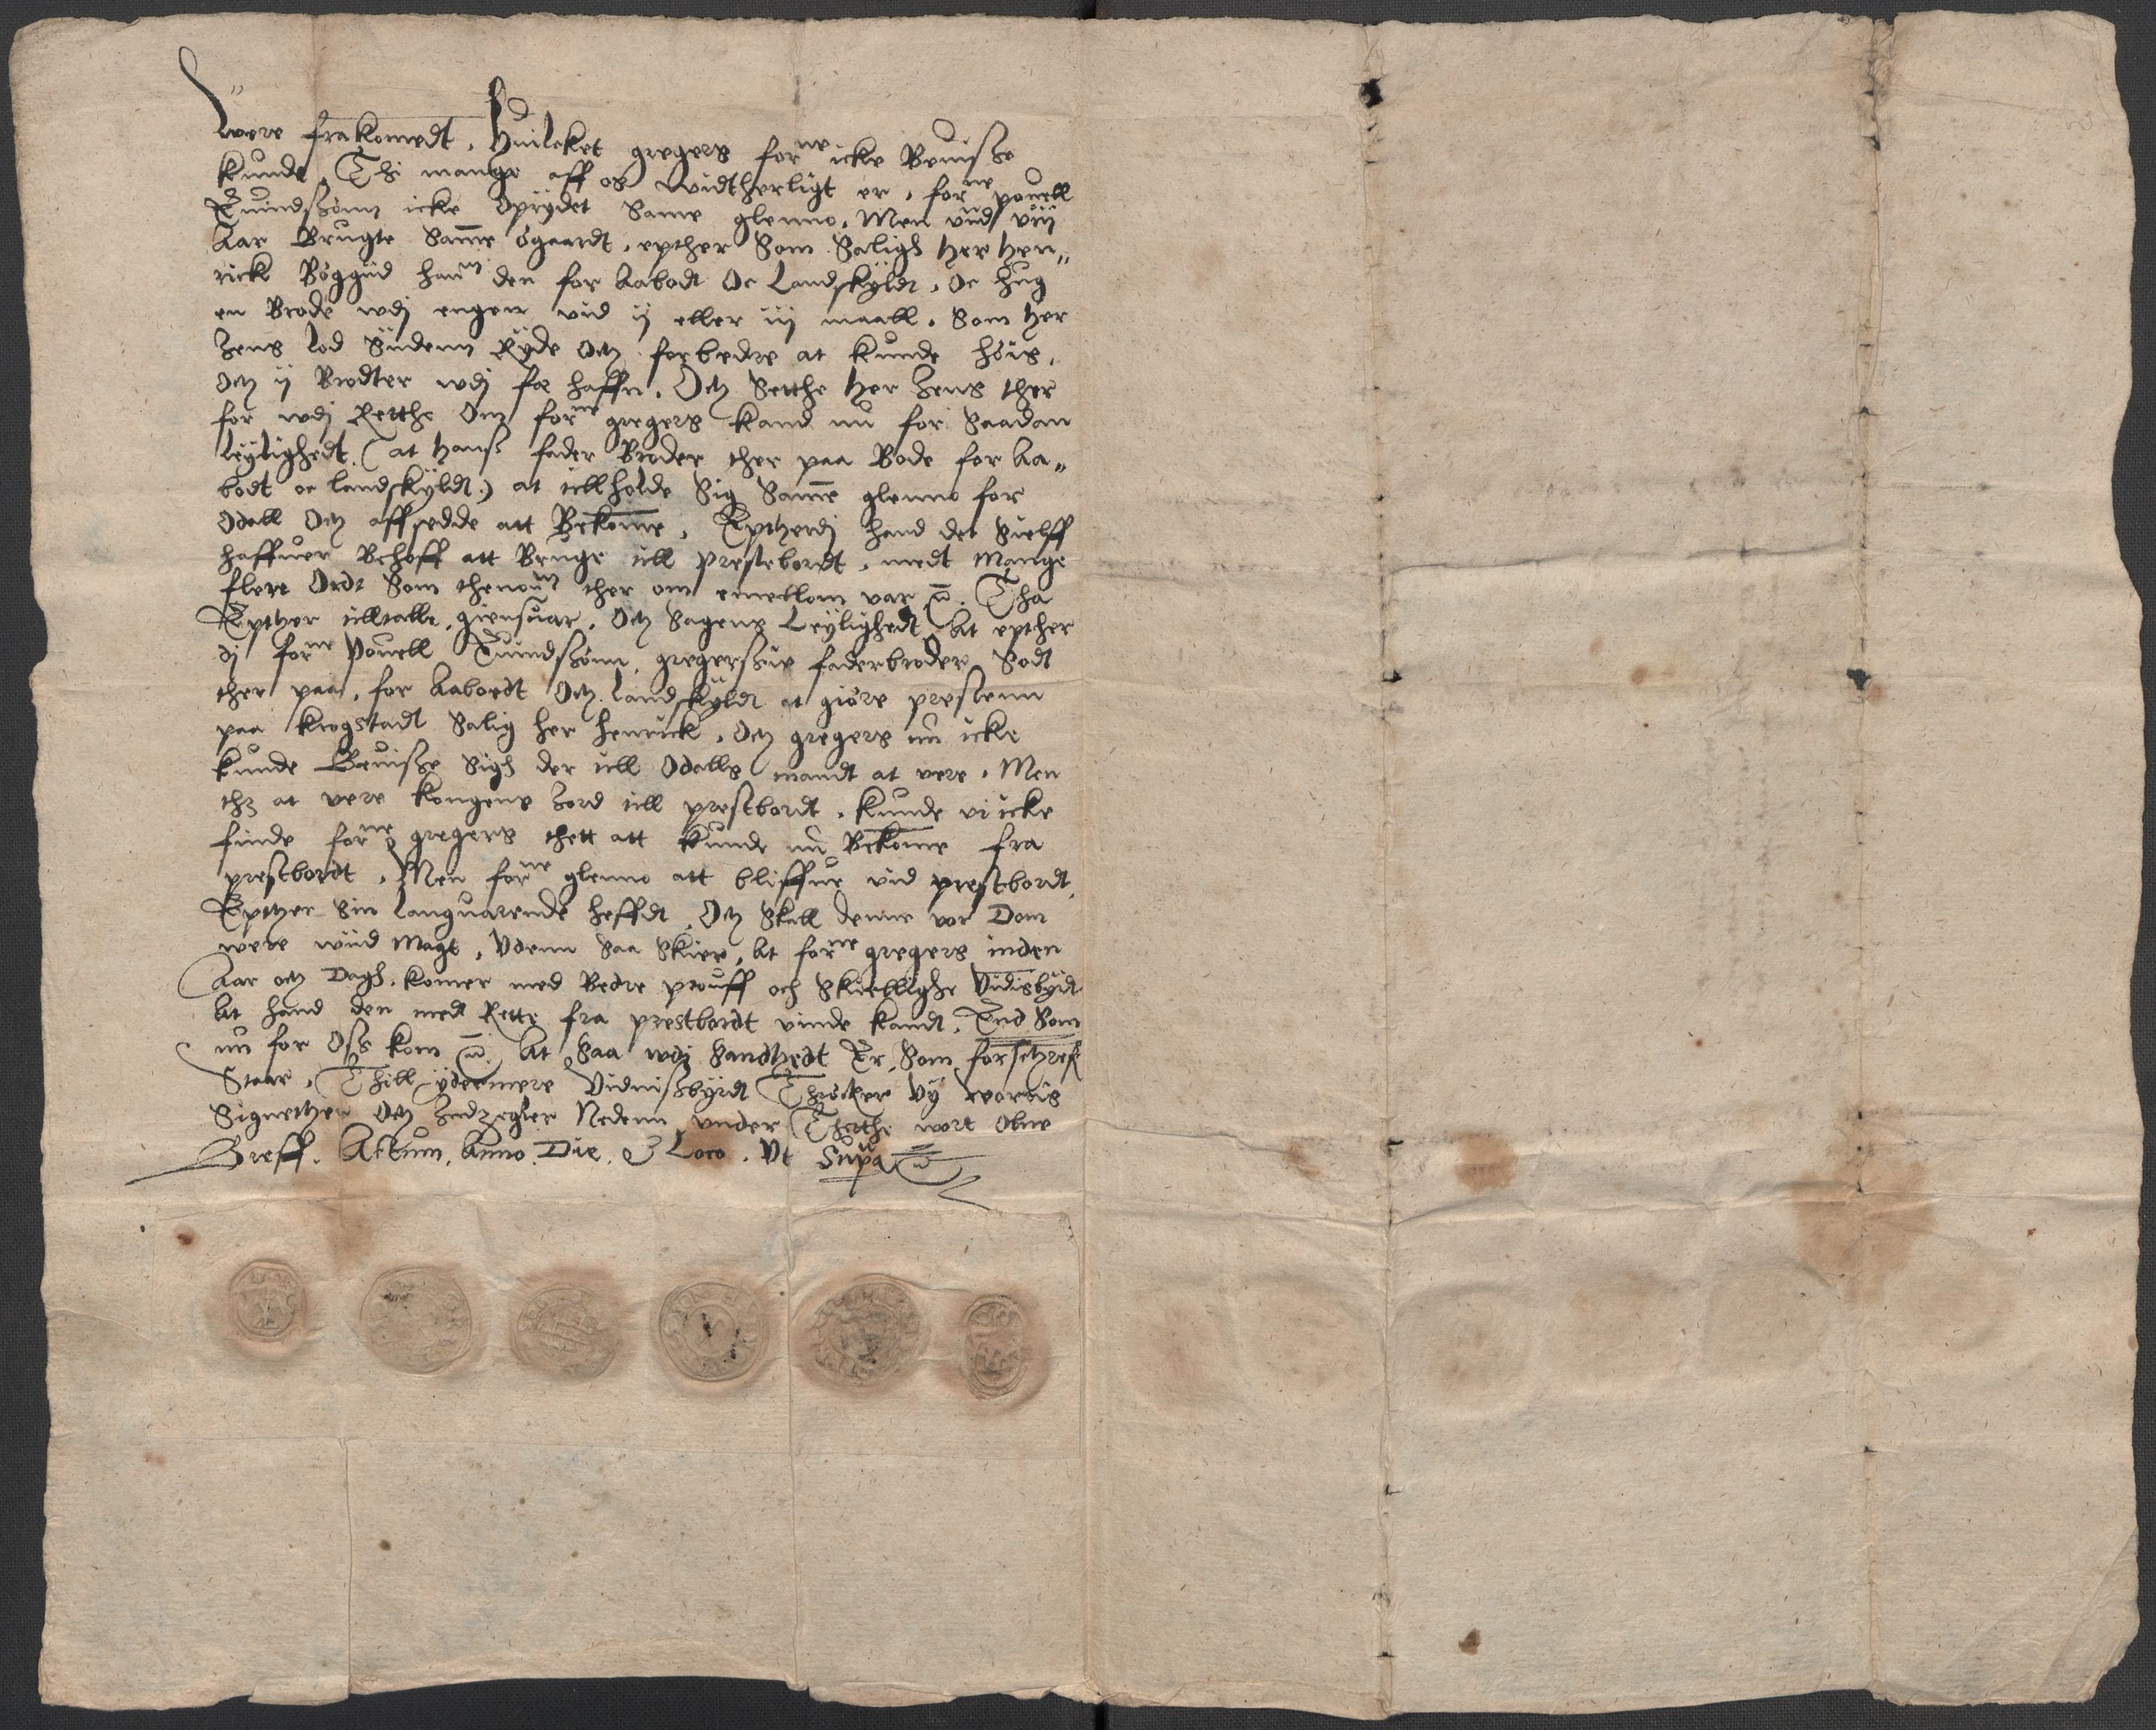 were frakomedt, Huilcket gregers forne icke Beuisße
kunde, Thi mange aff os widtherligt er, forne pouell
Euindßønn icke Oprydet Same glenno, Men vid viij
Aar Brugte Same øgaardt, epther Som Saligh Her Hen„
rick Bøggüd hanm den for Aabodt Oc Landskyldt, Oc hug
en Brode wdj engen vid ij eller iij maall, Som Her
Jens lod Sidenn Ryde Och forbedre at kunde høis,
Och ij Brodter wdj fæ haffn, Och Setthe Her Jens ther
for wdj Retthe Om forne gregers kand nu for Saadan
leÿlighedt, (at Hanß fader Broder ther paa Bode for Aa„
bodt oc landskyldt) at tillholde Sig Same glenno for
Odell Och affsedde att Bekome, Eptherdj hand det Sielff
haffuer Behoff att Bruge till prestebordt, medt Mange
flere Ordt Som thenom ther om emellom var etc. Tha
Epther tilltalle, giensuar, Och Sagens Leÿlighedt, At epther
dj forne Pouell Euindßønn, gregersßis faderbroder Bodt
ther paa, for Aabordt Och Landskyldt at giøre prestenn
paa krogstadt Salig her Henrick, Och gregers nu icke
kunde Beuisße Sigh der till Odells mandt at vere, Men
thz at vere kongens Jord till prestbordt, kunde vi icke
finde forne gregers thett att kunde nu Bekome fra
prestbordt, Men forne glenno att bliffue vid prestbordt,
Epther Sin languarende heffdt, Och Skall denne vor Dom
were wiid Magt, Vdenn Saa Skier, At forne gregers inden
Aar och Dagh, komer med Bedre prouff och Skiellighe Vidisbyrdt
At hand den medt Rette fra prestbordt vinde kandt, End Som
nu for Oss kom etc. At Saa wdj Sandhedt Er, Som forschreff
Staar, Thill ÿdermere Vidnißbyrdt Thrøcker Vÿ worris
Signether Och Indzegler Nedenn vnder Thette wort Obne
Breff. Actum, Anno, Die, & Loco, Vt Supra etc